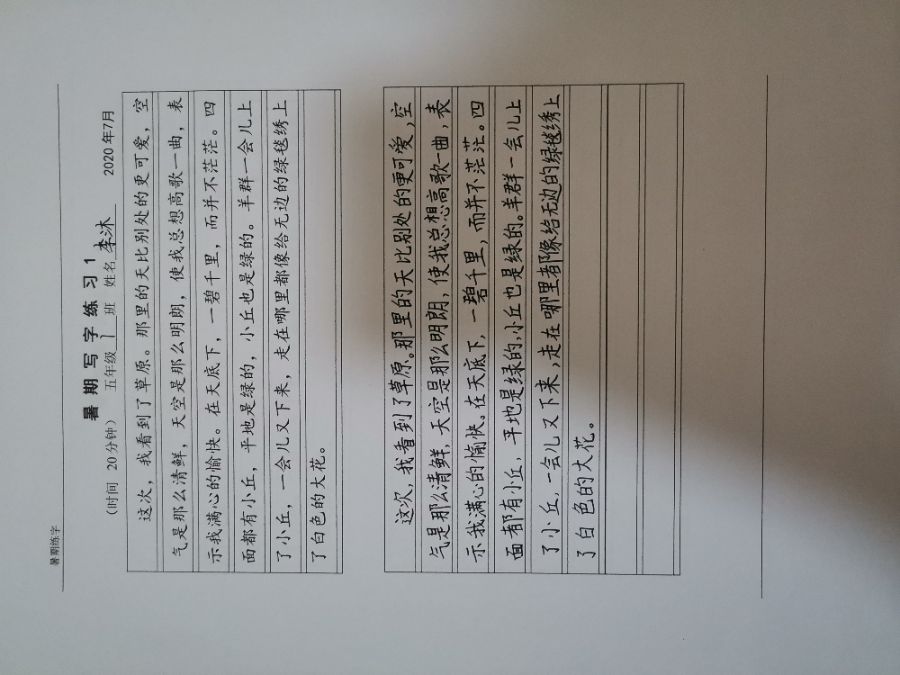 暑期练字
暑 期 写 字 练 习 1
（时间 20分钟） 五年级 1 班 姓名 李沐 2020年7月
这次，我看到了草原。那里的天比别处的更可爱，空
气是那么清鲜，天空是那么明朗，使我总想高歌一曲，表
示我满心的愉快。在天底下，一碧千里，而并不茫茫。四
面都有小丘，平地是绿的，小丘也是绿的。羊群一会儿上
了小丘，一会儿又下来，走在哪里都像给无边的绿毯绣上
了白色的大花。
这次，我看到了草原。那里的天比别处的更可爱，空
气是那么清鲜，天空是那么明朗，使我总想高歌一曲，表
示我满心的愉快。在天底下，一碧千里，而并不茫茫。四
面都有小丘，平地是绿的，小丘也是绿的。羊群一会儿上
了小丘，一会儿又下来，走在哪里都像给无边的绿毯绣上
了白色的大花。